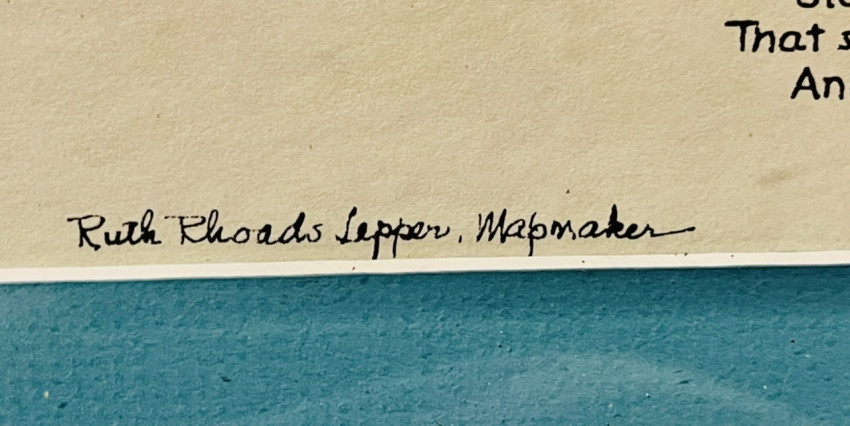 That
An
Ruth Rhoads Lepper, Mapmaker